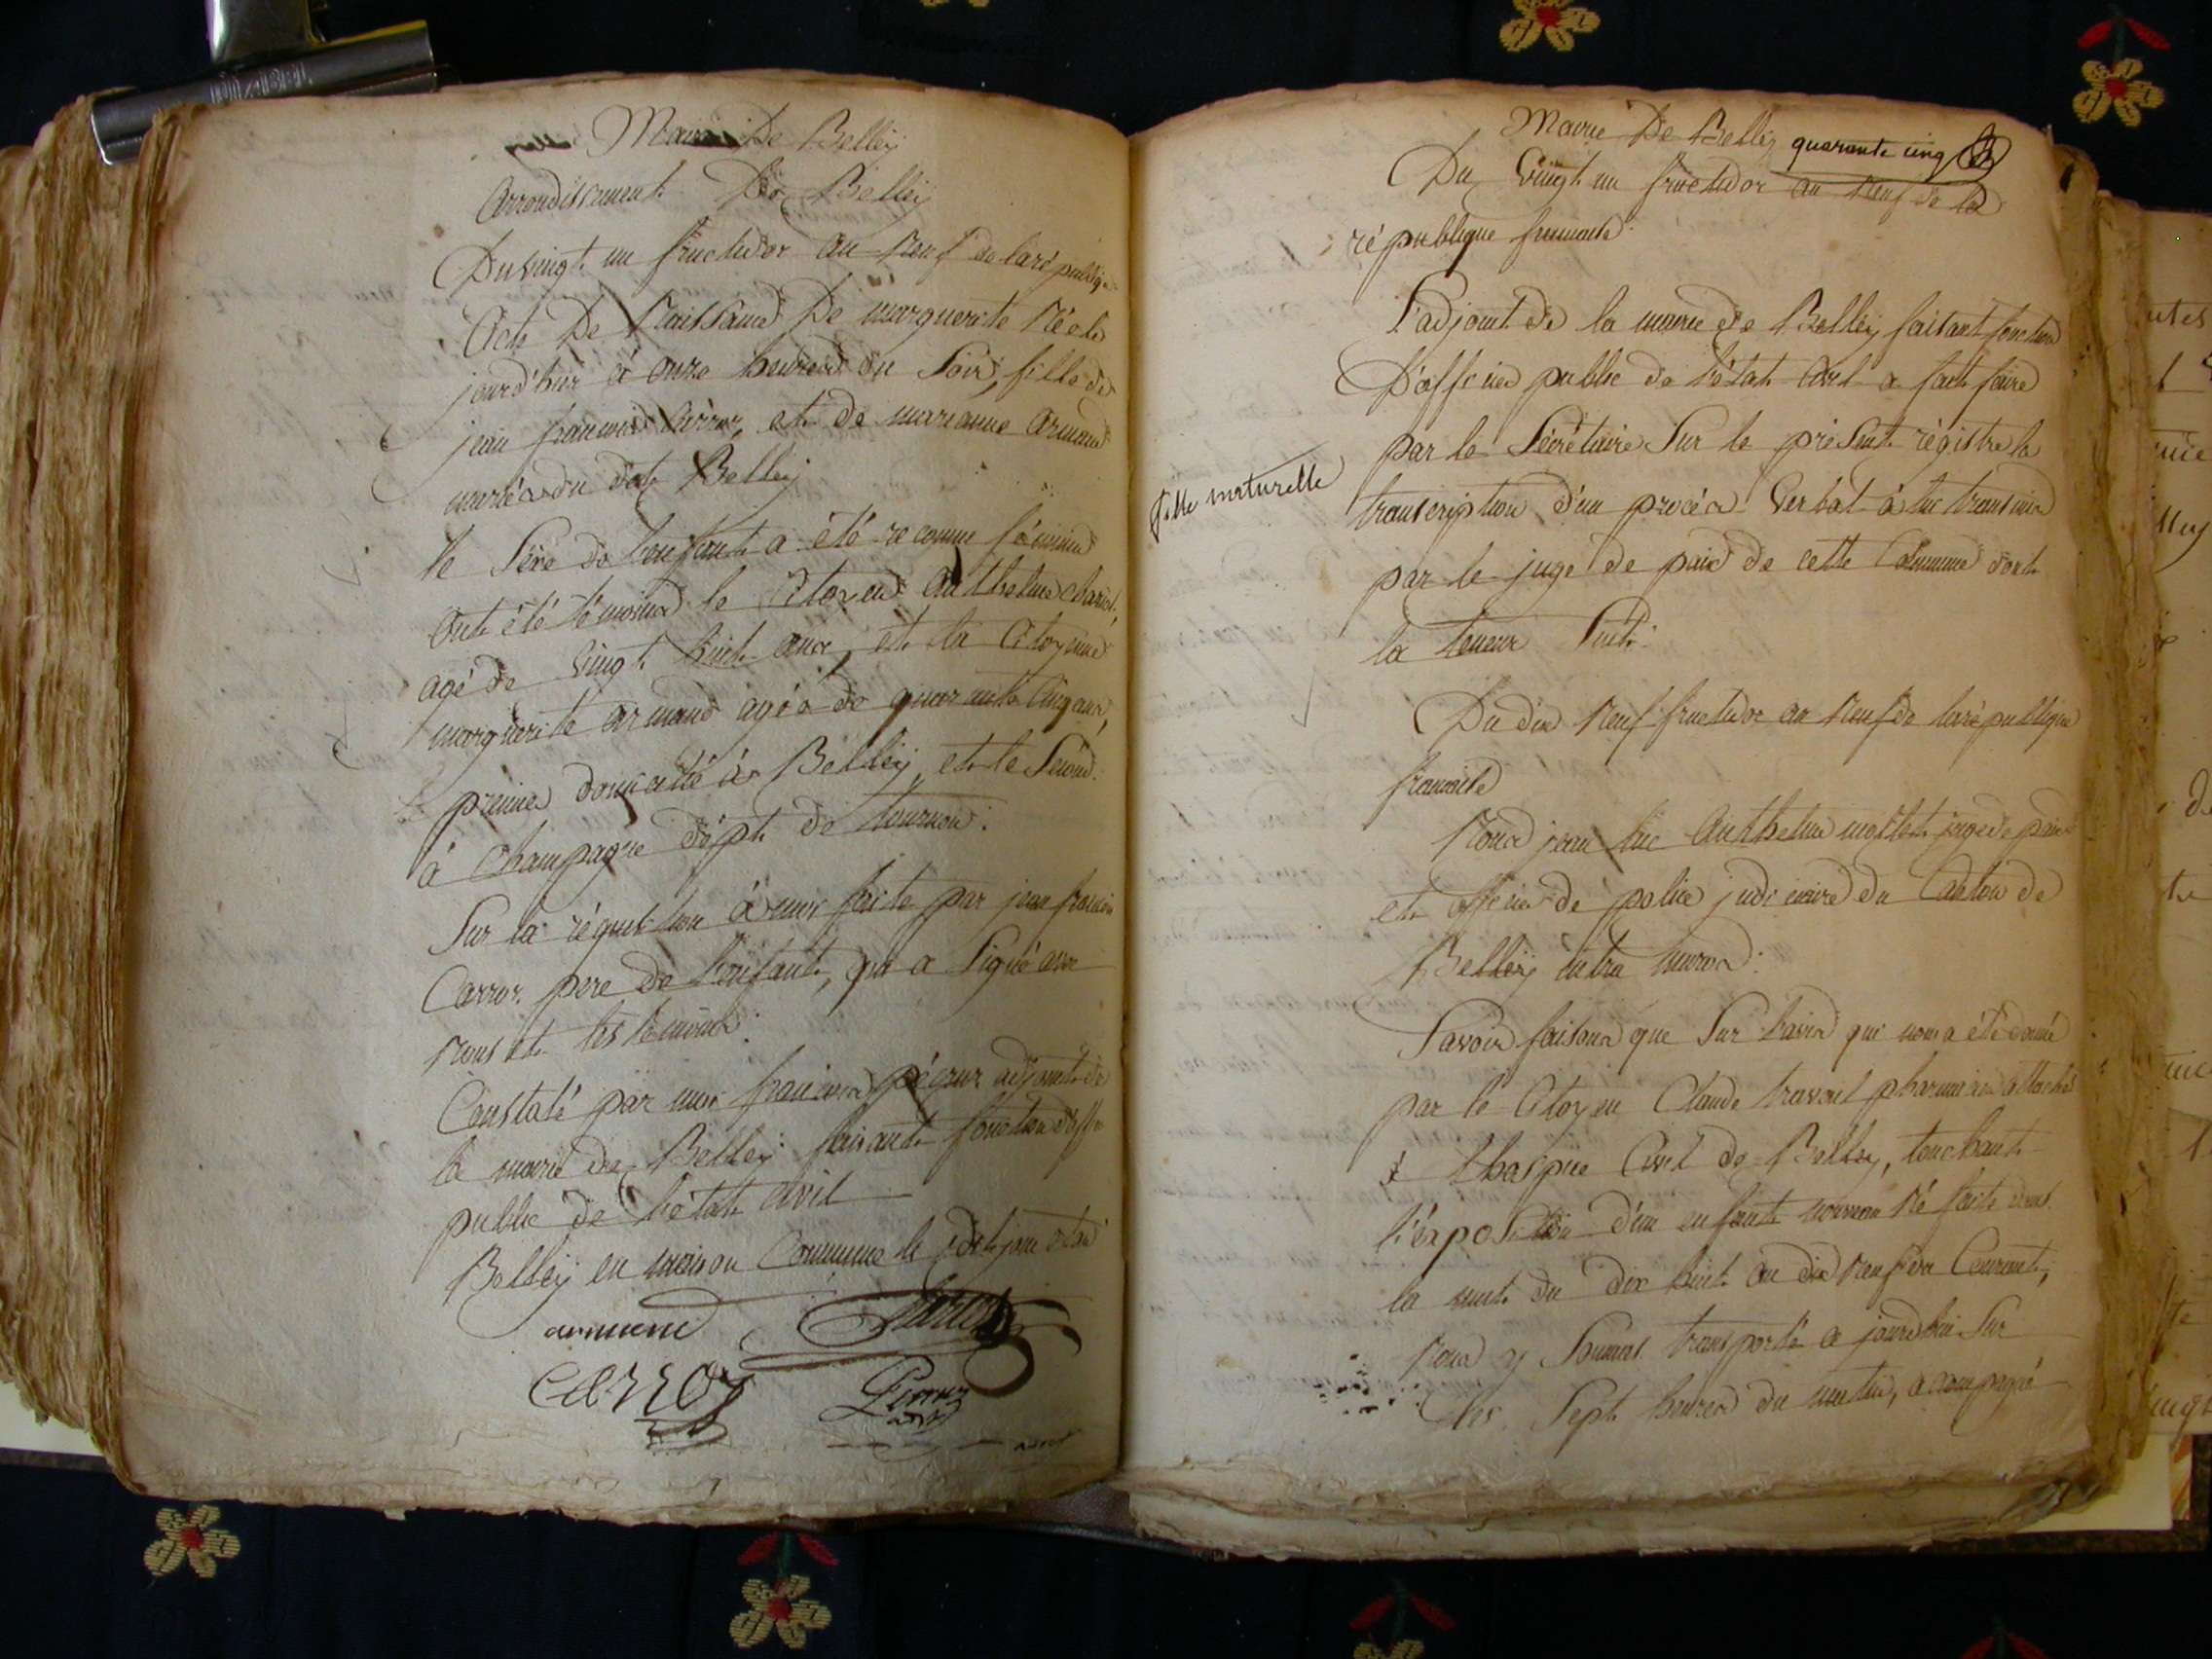 Mairie De Belleÿ
Arrondissement De Belleÿ
Du vingt un fructidor an neuf de la républiq
Acte De Naissance De marguerite Née le
jourd'hui à onze heures du Soir, fille de
jean francois Carror, et de marianne armand
mariés du dit Belleÿ
le Sexe de lenfant a été reconnu féminin
Ont été témoins le Citoyen Anthelme
agé de vingt huit ans, et la Citoyenne
marguerite armand agée de quarante Cinq ans,
le premier domicilié à Belleÿ, et le Second
à Champagne dépt. de
Sur la réquisition à nous faite par jean francois
Carror. pere de lenfant, qui a Signé avec
nous et les témoins.
Constaté par moi francois adjoint de
la mairie de Belleÿ faisant fonction d'off
public de l'état Civil
Belleÿ en maison Commune le dit jour et an
armand
carror
Mairie De Belleÿ quarante cinq
Du Vingt un fructidor an Neuf de la
république francaise.
L'adjoint de la mairie de Belleÿ faisant fonction
D'officier public de l'état Civil a fait faire
par le Sécrétaire Sur le présent régistre la
fille naturelle
transcription d'un procès Verbal à lui transmis
par le juge de paix de cette Commune dont
la teneur Suit.
Du dix Neuf fructidor an Neuf de la république
francaise
Nous jean luc Anthelme mollet juge de paix
et officier de police judiciaire du Canton de
Belleÿ intra muros.
Savoir faisons que Sur lavis qui nous a été donné
par le Citoyen Claude travail pharmacien attaché
à lhospice Civil de Belleÿ, touchant
l'éxposition d'un enfant nouveau Né faite dans
la nuit du dix huit au dix Neuf du Courant,
Nous y Sommes transporté ajourdhui Sur
les Sept heures du matin, accompagné